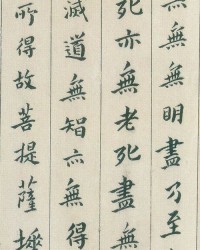 亦無無明盡乃至
死亦無老死盡無
滅道無智亦無得
所得故菩提薩埵